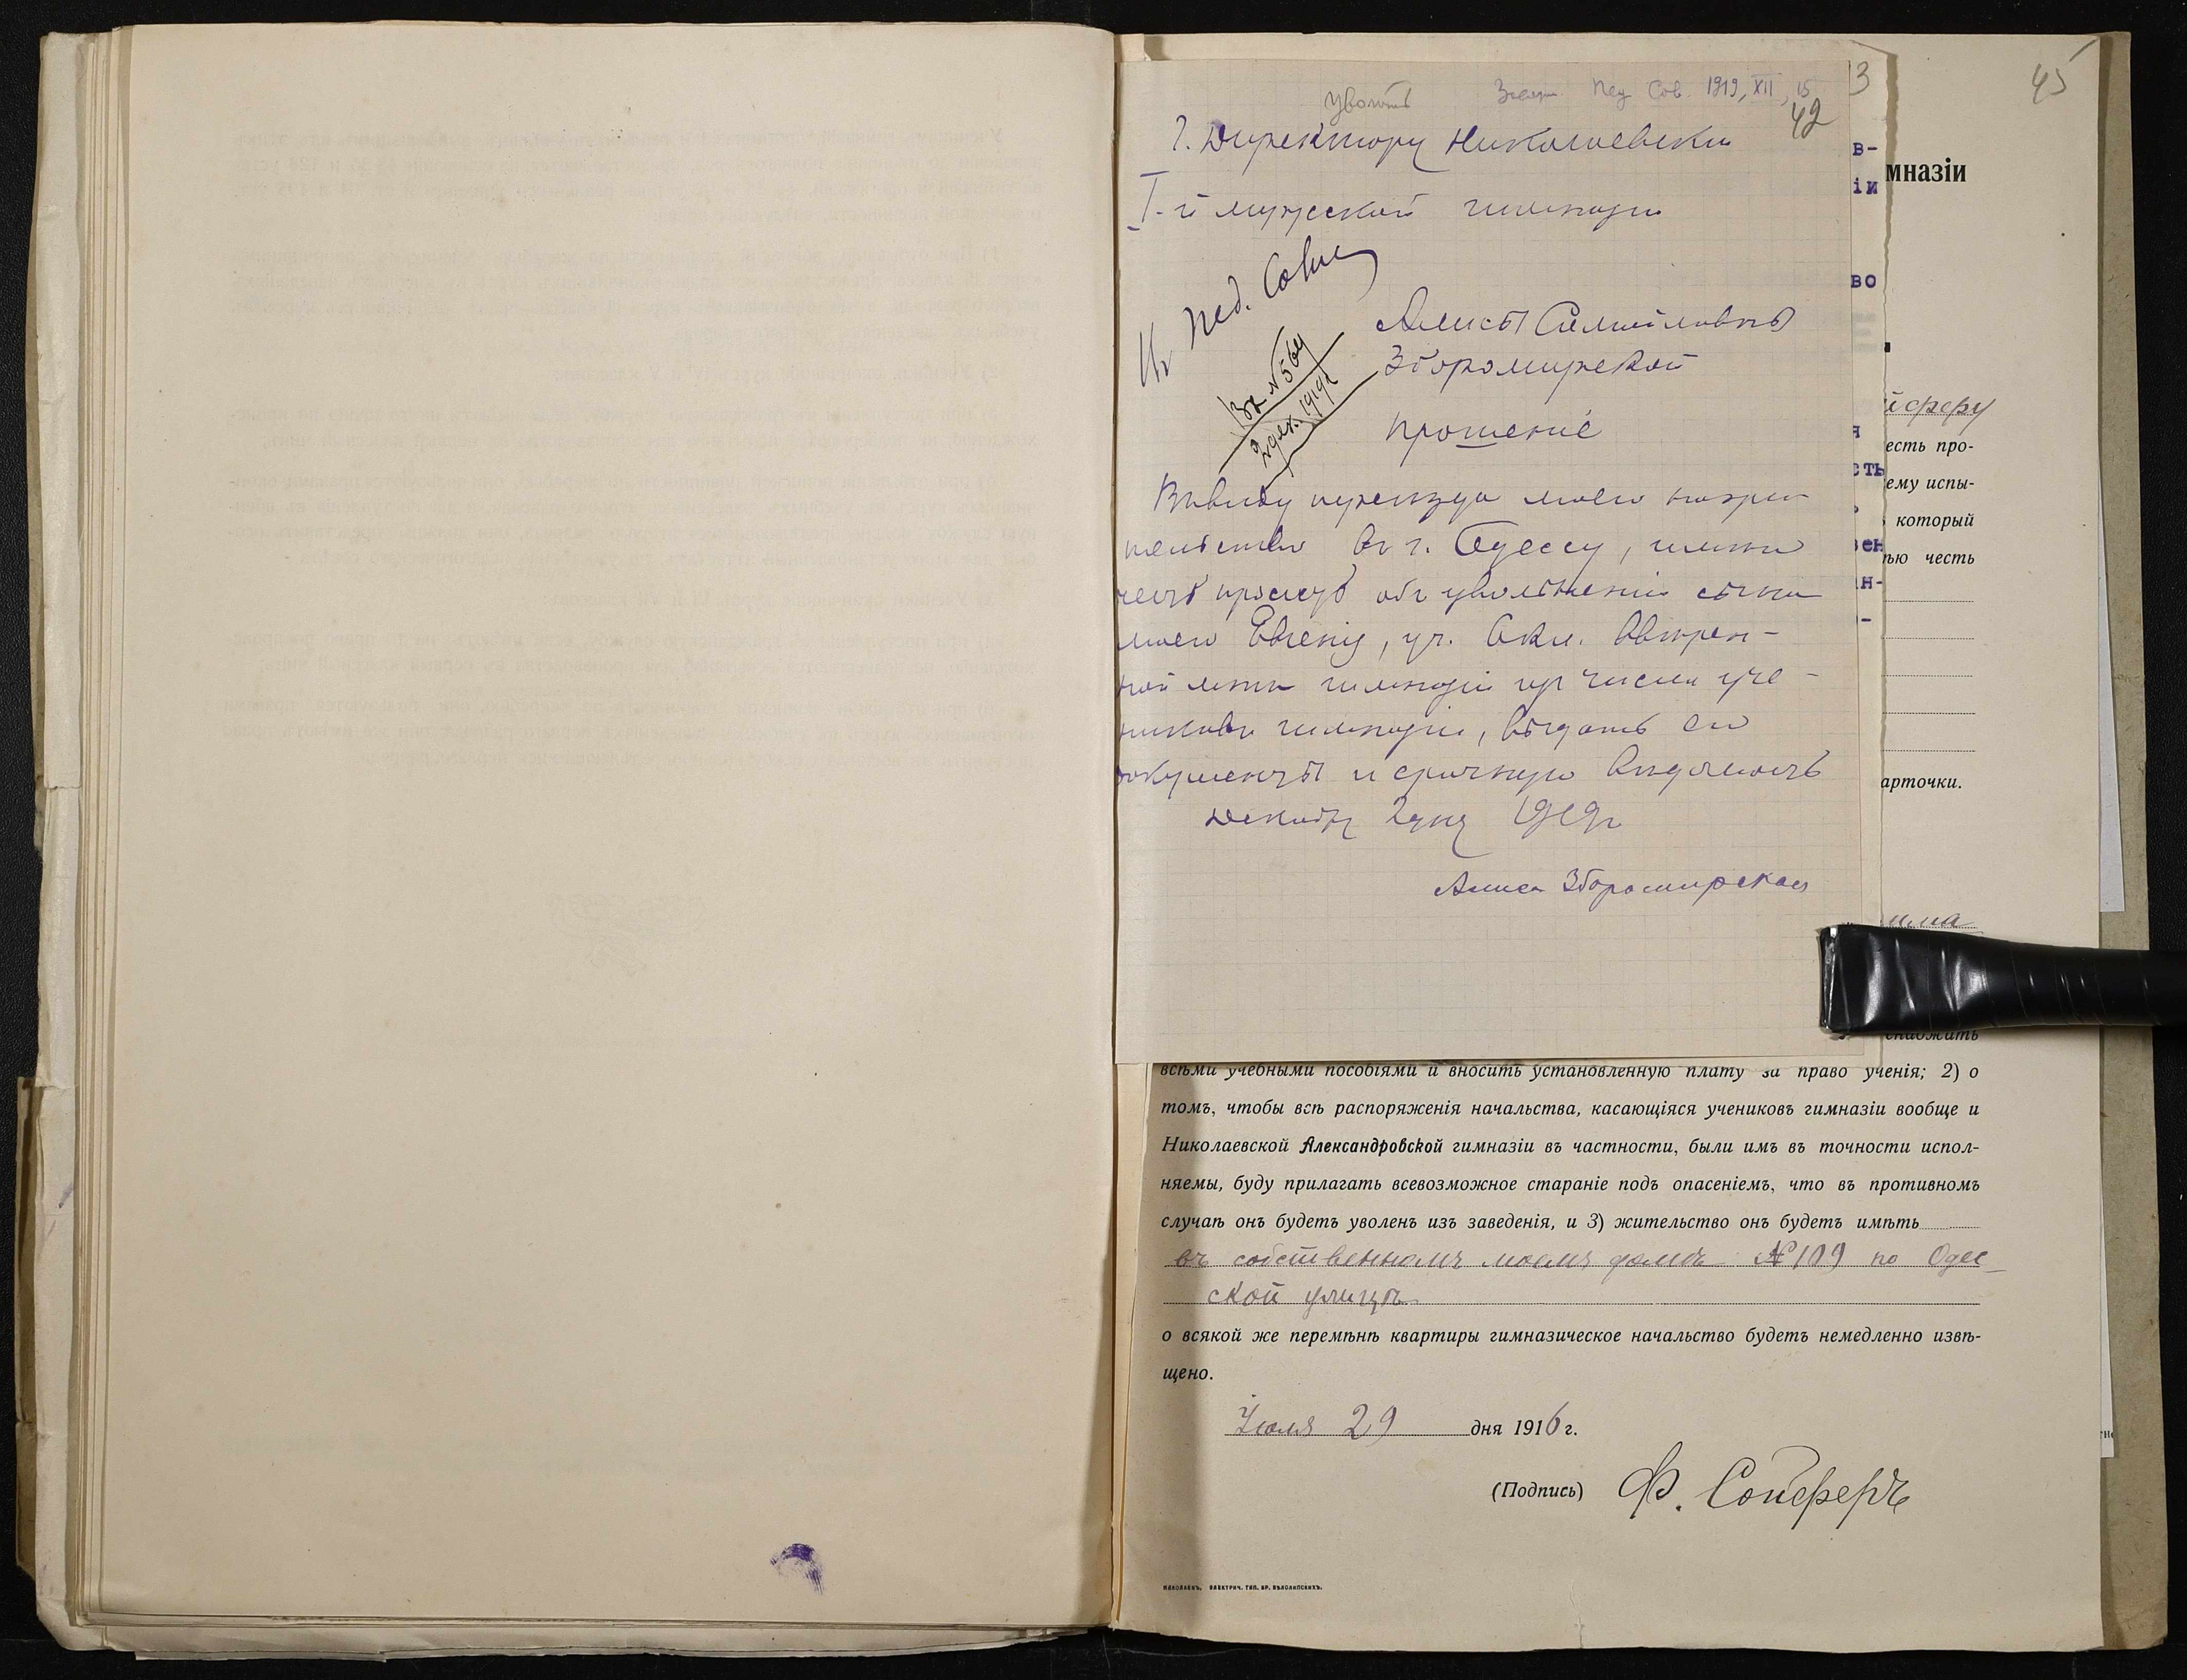 45
3
уволить Засед. Пед. Сов. 1919, XII, 15
42
Г. Директору Николаевской
I-й мужской гимназіи
Въ Пед. Совѣтъ
Вх. № 564
2 дек. 1919 г.
Алисы
Збромирской
прошеніе
Ввиду переѣзда моего на жи-
тельство въ г. Одессу, имѣю
честь просить объ увольненіи сына
моего Евгенія, уч. 6 кл. ввѣрен-
ной вамъ гимназіи изъ числа уче-
никовъ гимназіи, выдать его
документы и срочную вѣдомость
Декабря 2 дня 1919 г.
Алиса Збромирская
в-
іи
во
сть
вен
ан-
мназіи
есть про-
ему испы-
который
ью честь
арточки.
снабжить
всѣми учебными пособіями и вносить установленную плату за право ученія; 2) о
томъ, чтобы всѣ распоряженія начальства, касающіяся учениковъ гимназіи вообще и
Николаевской Александровской гимназіи въ частности, были имъ въ точности испол-
няемы, буду прилагать всевозможное стараніе подъ опасеніемъ, что въ противномъ
случаѣ онъ будетъ уволенъ изъ заведенія, и 3) жительство онъ будетъ имѣть
въ собственномъ моемъ домѣ №109 по Одес
ской улицѣ
о всякой же перемѣнѣ квартиры гимназическое начальство будетъ немедленно извѣ-
щено.
Іюля 29 дня 1916 г.
(Подпись) Ф. Сойферъ
НИКОЛАЕВЪ, ЭЛЕКТРИЧ. ТИП. БР. БѢЛОЛИПСКИХЪ.